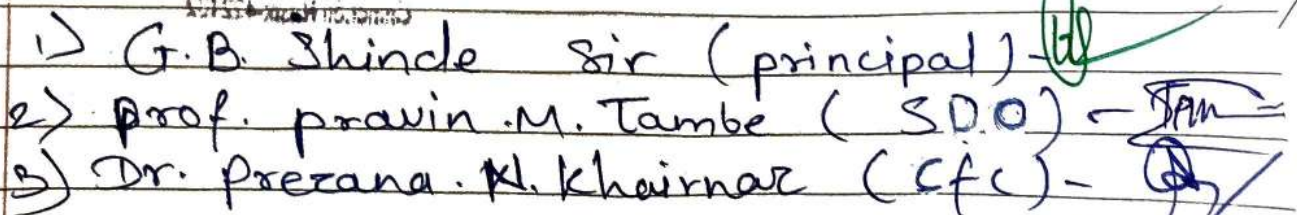 1) G.B. Shinde Sir (principal) -
2) prof. pravin .M. Tambe ( S.D.O) -
3) Dr. Prerana. N. Khairnar (cfc) -